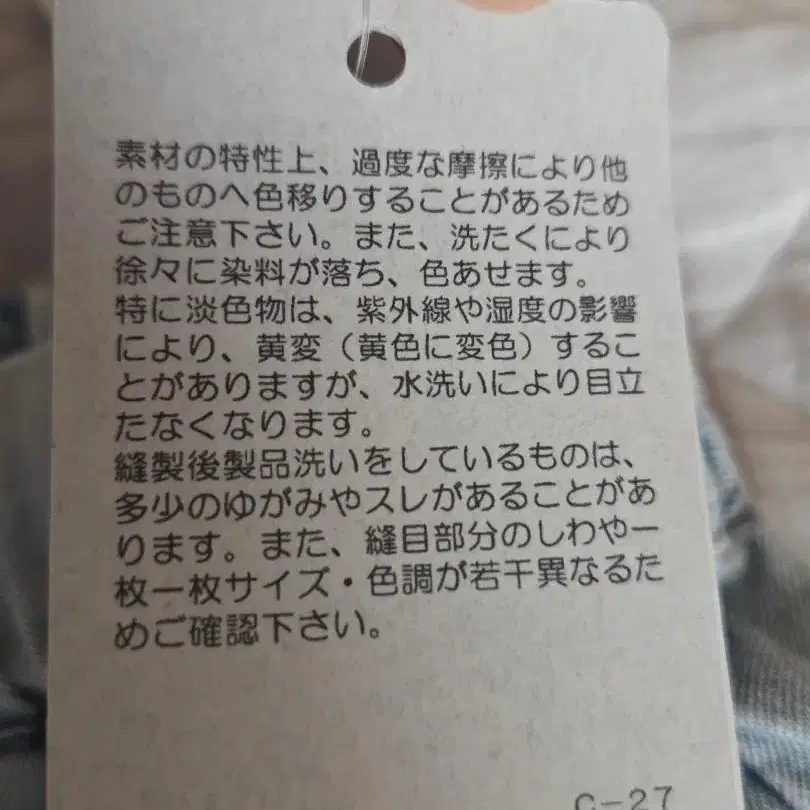 素材の特性上、過度な摩擦により他
のものへ色移りすることがあるため
ご注意下さい。また、洗たくにより
徐々に染料が落ち、色あせます。
特に淡色物は、紫外線や湿度の影響
により、黄変（黄色に変色）するこ
とがありますが、水洗いにより目立
たなくなります。
縫製後製品洗いをしているものは、
多少のゆがみやスレがあることがあ
ります。また、縫目部分のしわや一
枚一枚サイズ・色調が若干異なるた
めご確認下さい。
C-27